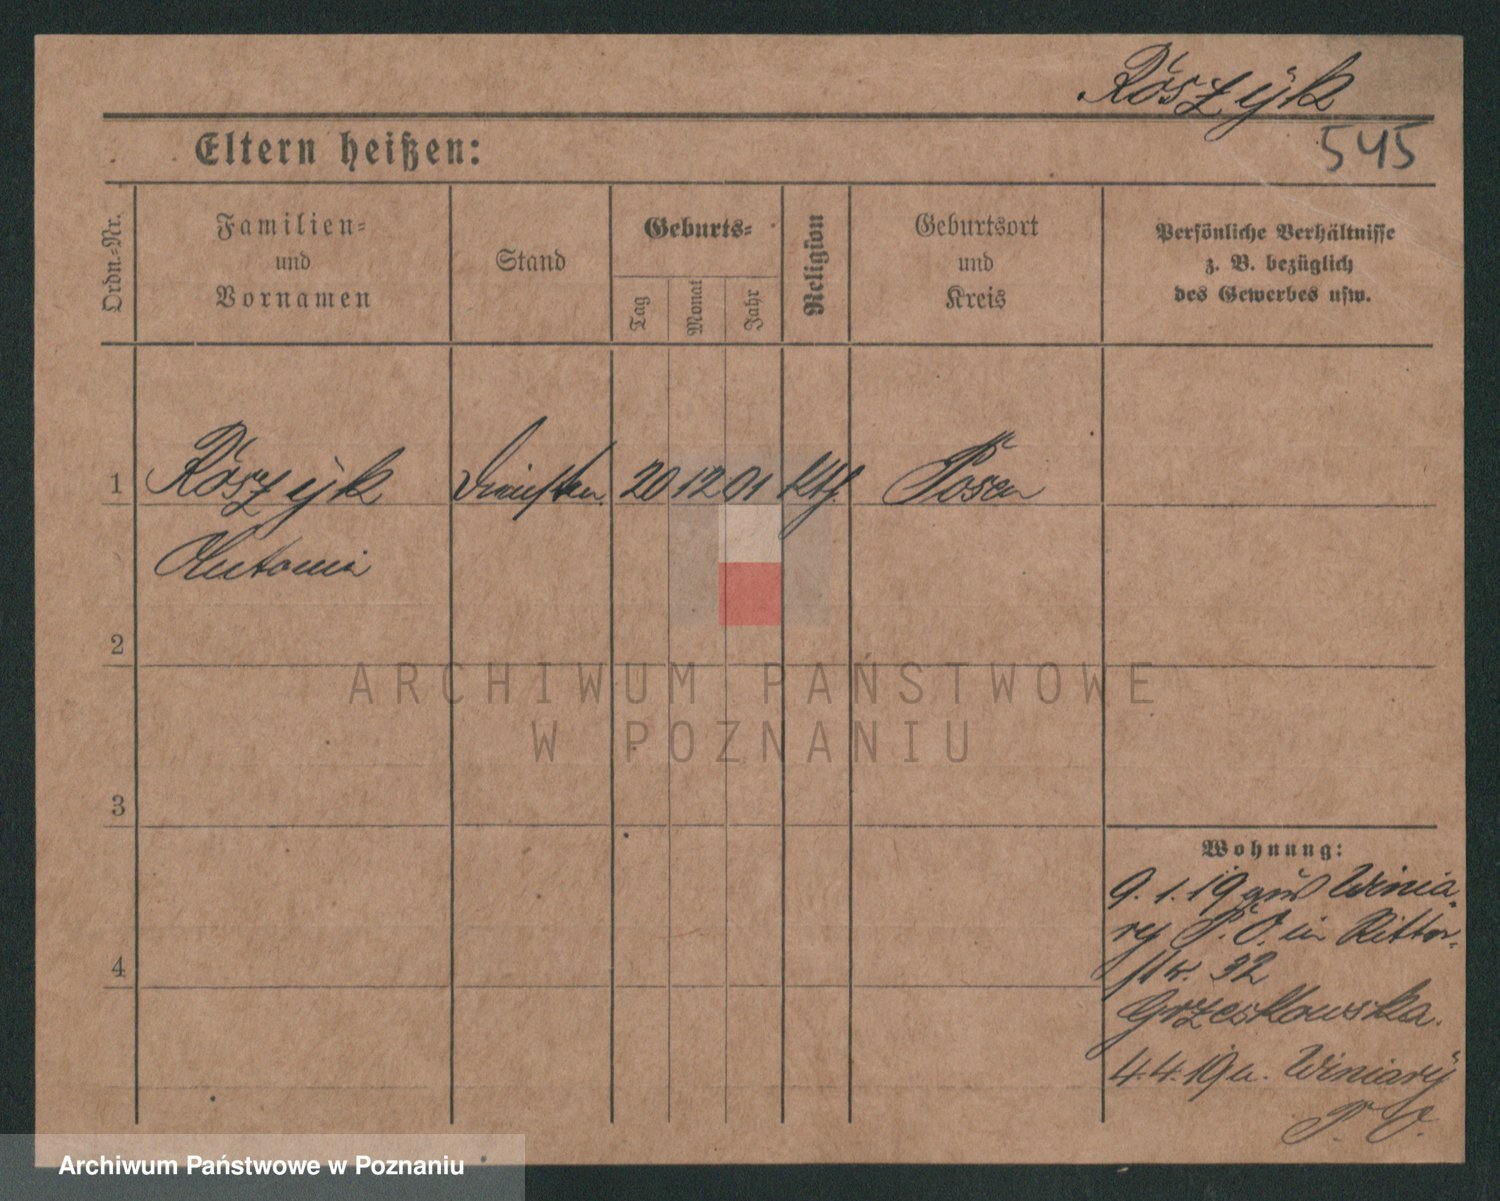 Rószÿk
545
Eltern heißen:
Ordn.-Nr.
Familien-
und
Vornamen
Stand
Geburts-
Tag
Monat
Jahr
Religion
Geburtsort
und
Kreis
Persönliche Verhältnisse
z. B. bezüglich
des Gewerbes usw.
1 Rószÿk 20 12 01 Kth. Posen
Antonia
2
3
4
ARCHIWUM PAŃSTWOWE
W POZNANIU
Wohnung:
9.1.19 aus Winia-
ry P. O. in Ritter-
str. 32
Grzeskowska.
4.4.19 a. Winiarÿ
P. O.
Archiwum Państwowe w Poznaniu